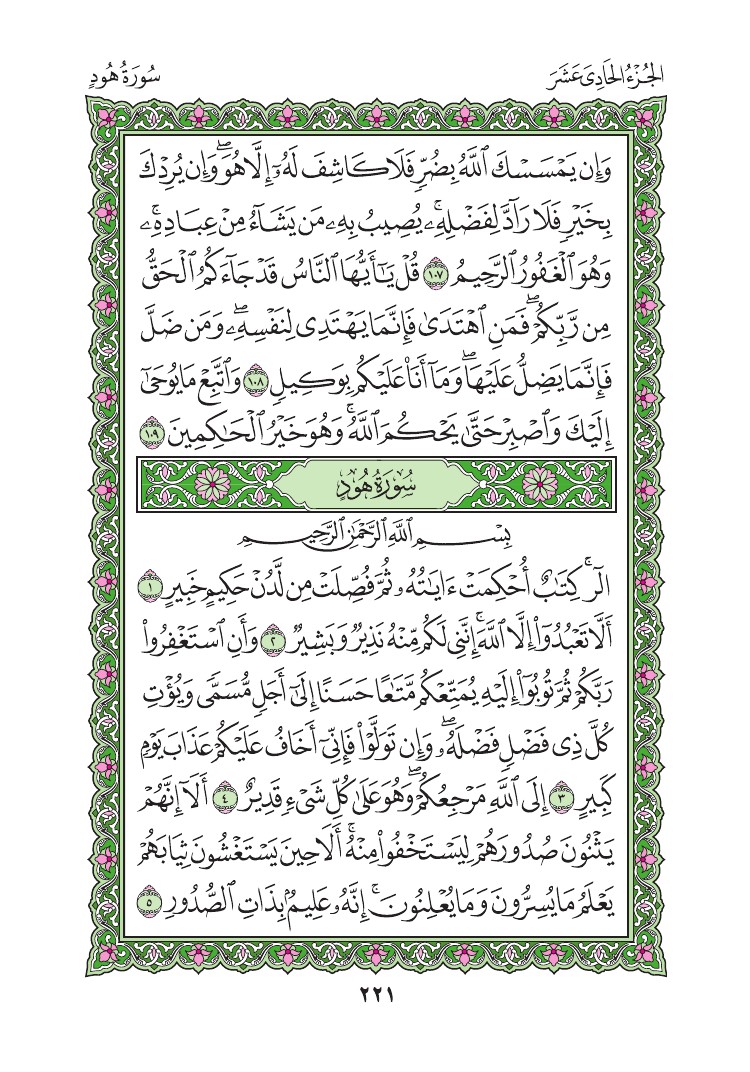 الجُزْءُ الحَادِى عَشَرَ
سُورَةُ هُودٍ
وَإِن يَمْسَسْكَ ٱللَّهُ بِضُرٍّ فَلَا كَاشِفَ لَهُۥٓ إِلَّا هُوَۖ وَإِن يُرِدْكَ
بِخَيْرٍ فَلَا رَآدَّ لِفَضْلِهِۦۚ يُصِيبُ بِهِۦ مَن يَشَآءُ مِنْ عِبَادِهِۦۚ
وَهُوَ ٱلْغَفُورُ ٱلرَّحِيمُ ١٠٧ قُلْ يَٰٓأَيُّهَا ٱلنَّاسُ قَدْ جَآءَكُمُ ٱلْحَقُّ
مِن رَّبِّكُمْۖ فَمَنِ ٱهْتَدَىٰ فَإِنَّمَا يَهْتَدِى لِنَفْسِهِۦۖ وَمَن ضَلَّ
فَإِنَّمَا يَضِلُّ عَلَيْهَاۖ وَمَآ أَنَا۠ عَلَيْكُم بِوَكِيلٍ ١٠٨ وَٱتَّبِعْ مَا يُوحَىٰٓ
إِلَيْكَ وَٱصْبِرْ حَتَّىٰ يَحْكُمَ ٱللَّهُۚ وَهُوَ خَيْرُ ٱلْحَٰكِمِينَ ١٠٩
سُورَةُ هُودٍ
بِسْمِ ٱللَّهِ ٱلرَّحْمَٰنِ ٱلرَّحِيمِ
الٓرۚ كِتَٰبٌ أُحْكِمَتْ ءَايَٰتُهُۥ ثُمَّ فُصِّلَتْ مِن لَّدُنْ حَكِيمٍ خَبِيرٍ ١
أَلَّا تَعْبُدُوٓا۟ إِلَّا ٱللَّهَۚ إِنَّنِى لَكُم مِّنْهُ نَذِيرٌ وَبَشِيرٌ ٢ وَأَنِ ٱسْتَغْفِرُوا۟
رَبَّكُمْ ثُمَّ تُوبُوٓا۟ إِلَيْهِ يُمَتِّعْكُم مَّتَٰعًا حَسَنًا إِلَىٰٓ أَجَلٍ مُّسَمًّى وَيُؤْتِ
كُلَّ ذِى فَضْلٍ فَضْلَهُۥۖ وَإِن تَوَلَّوْا۟ فَإِنِّىٓ أَخَافُ عَلَيْكُمْ عَذَابَ يَوْمٍ
كَبِيرٍ ٣ إِلَى ٱللَّهِ مَرْجِعُكُمْۖ وَهُوَ عَلَىٰ كُلِّ شَىْءٍ قَدِيرٌ ٤ أَلَآ إِنَّهُمْ
يَثْنُونَ صُدُورَهُمْ لِيَسْتَخْفُوا۟ مِنْهُۚ أَلَا حِينَ يَسْتَغْشُونَ ثِيَابَهُمْ
يَعْلَمُ مَا يُسِرُّونَ وَمَا يُعْلِنُونَۚ إِنَّهُۥ عَلِيمٌۢ بِذَاتِ ٱلصُّدُورِ ٥
٢٢١